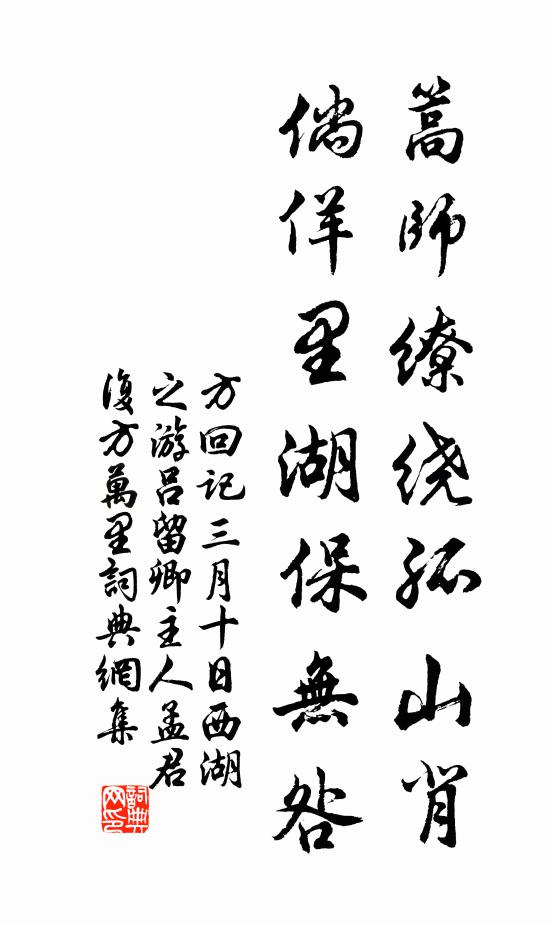 篙師繚绕孤山背
倘佯里湖保無咎
方回记三月十日西湖
之游吕留卿主人孟君
復方萬里詞典網集
詞典网印